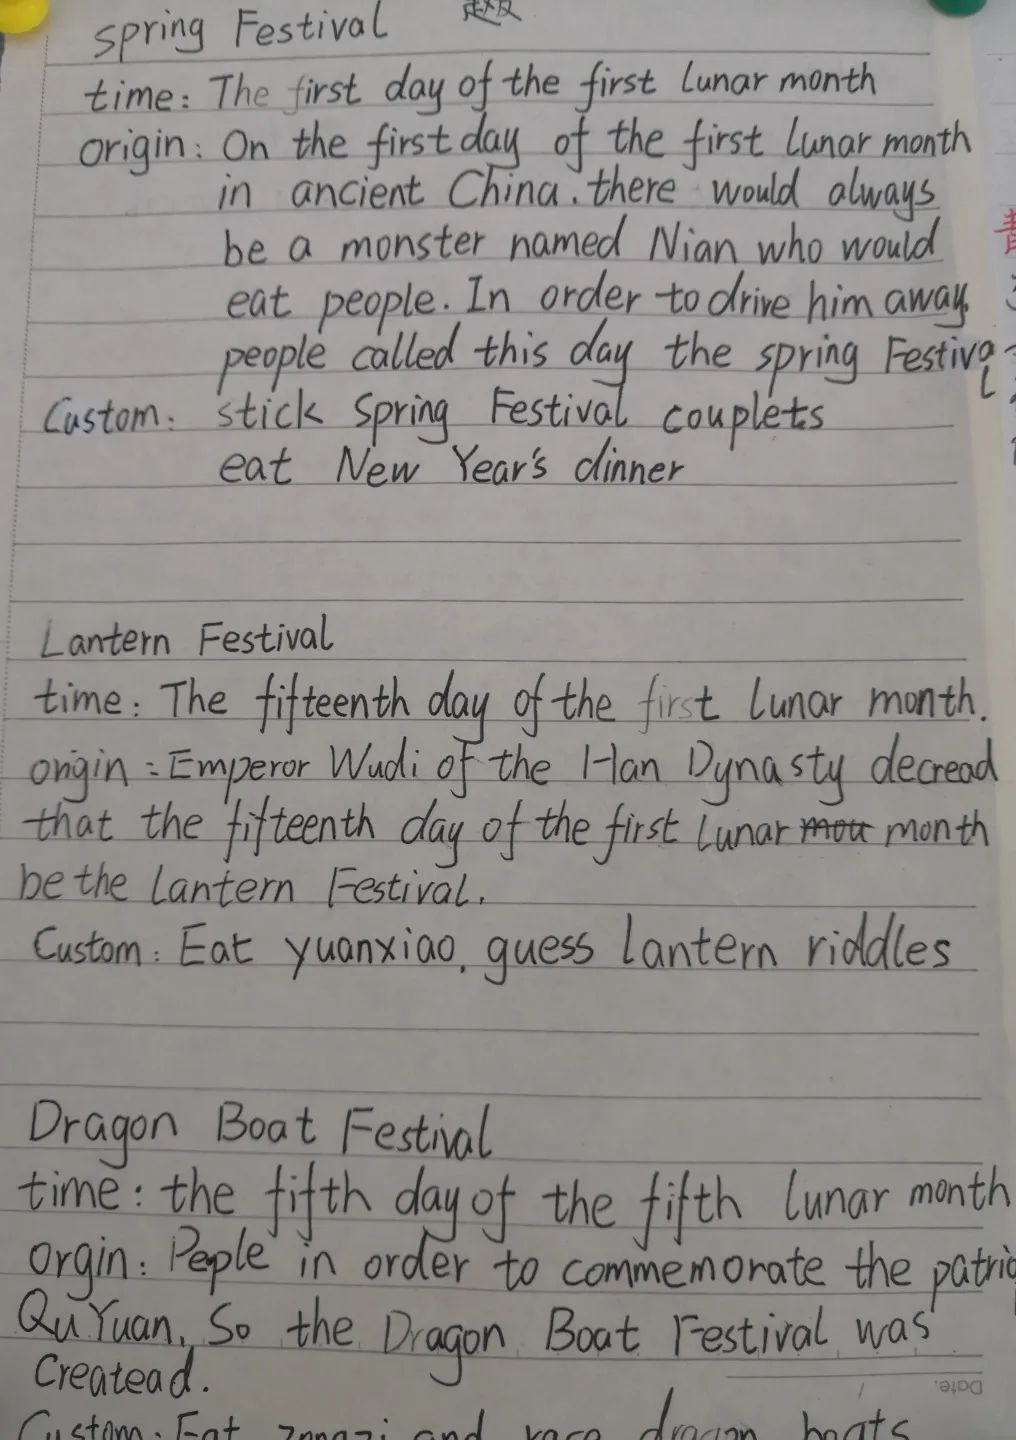 spring Festival
time: The first day of the first lunar month
origin: On the first day of the first lunar month
in ancient China. there would always
be a monster named Nian who would
eat people. In order to drive him away.
people called this day the spring Festival
Custom: stick Spring Festival couplets
eat New Year's dinner
Lantern Festival
time: The fifteenth day of the first lunar month.
origin: Emperor Wudi of the Han Dynasty decread
that the fifteenth day of the first lunar mou month
be the lantern Festival.
Custom: Eat yuanxiao, guess lantern riddles
Dragon Boat Festival
time: the fifth day of the fifth lunar month
orgin: Peple in order to commemorate the patrio
Qu Yuan, So the Dragon Boat Festival was
Createad.
Date.
Custom: Eat zongzi and race dragon boats